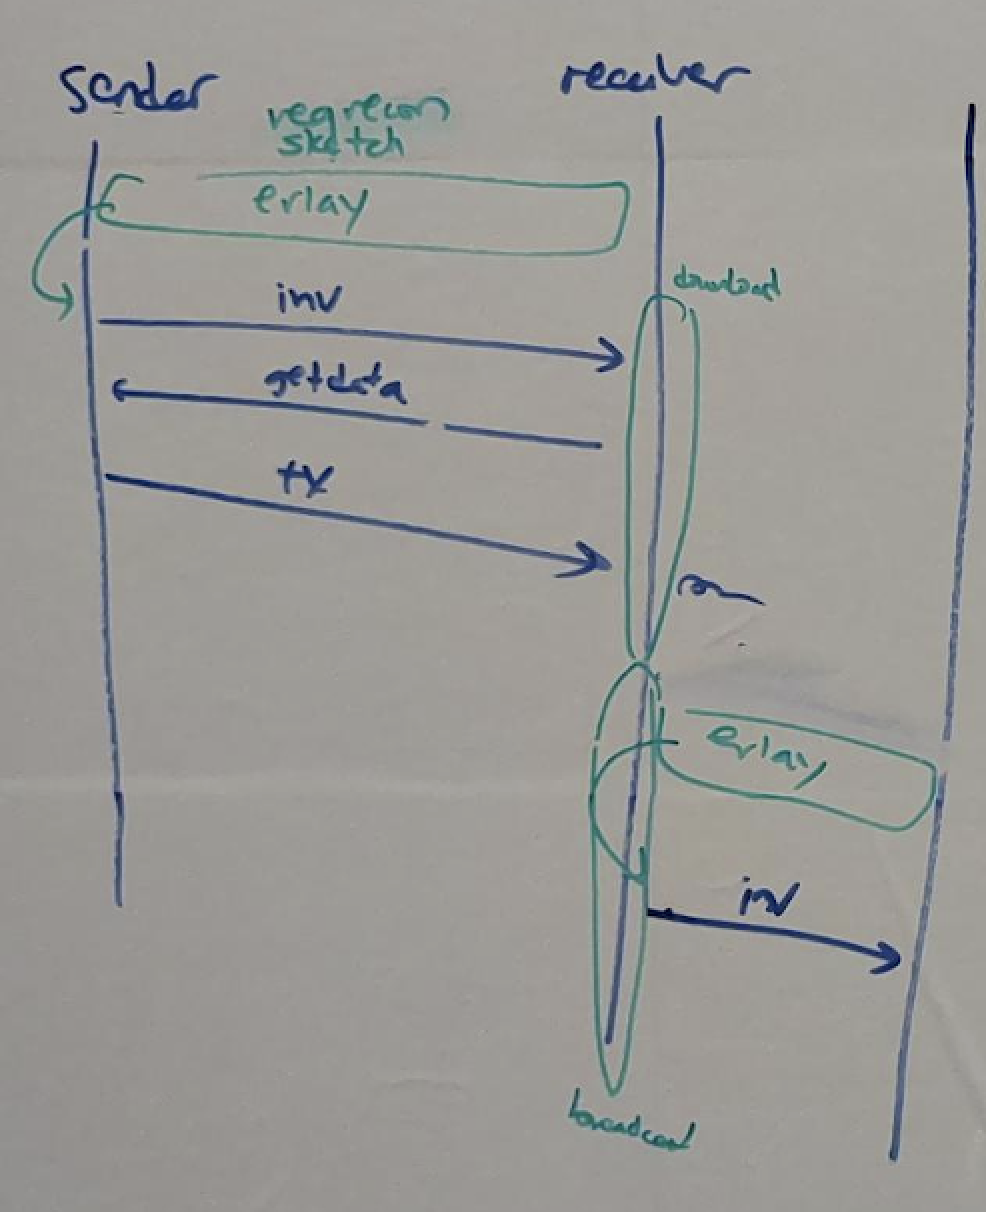 sender
receiver
reqrecon
sketch
erlay
download
inv
getdata
tx
erlay
inv
broadcast